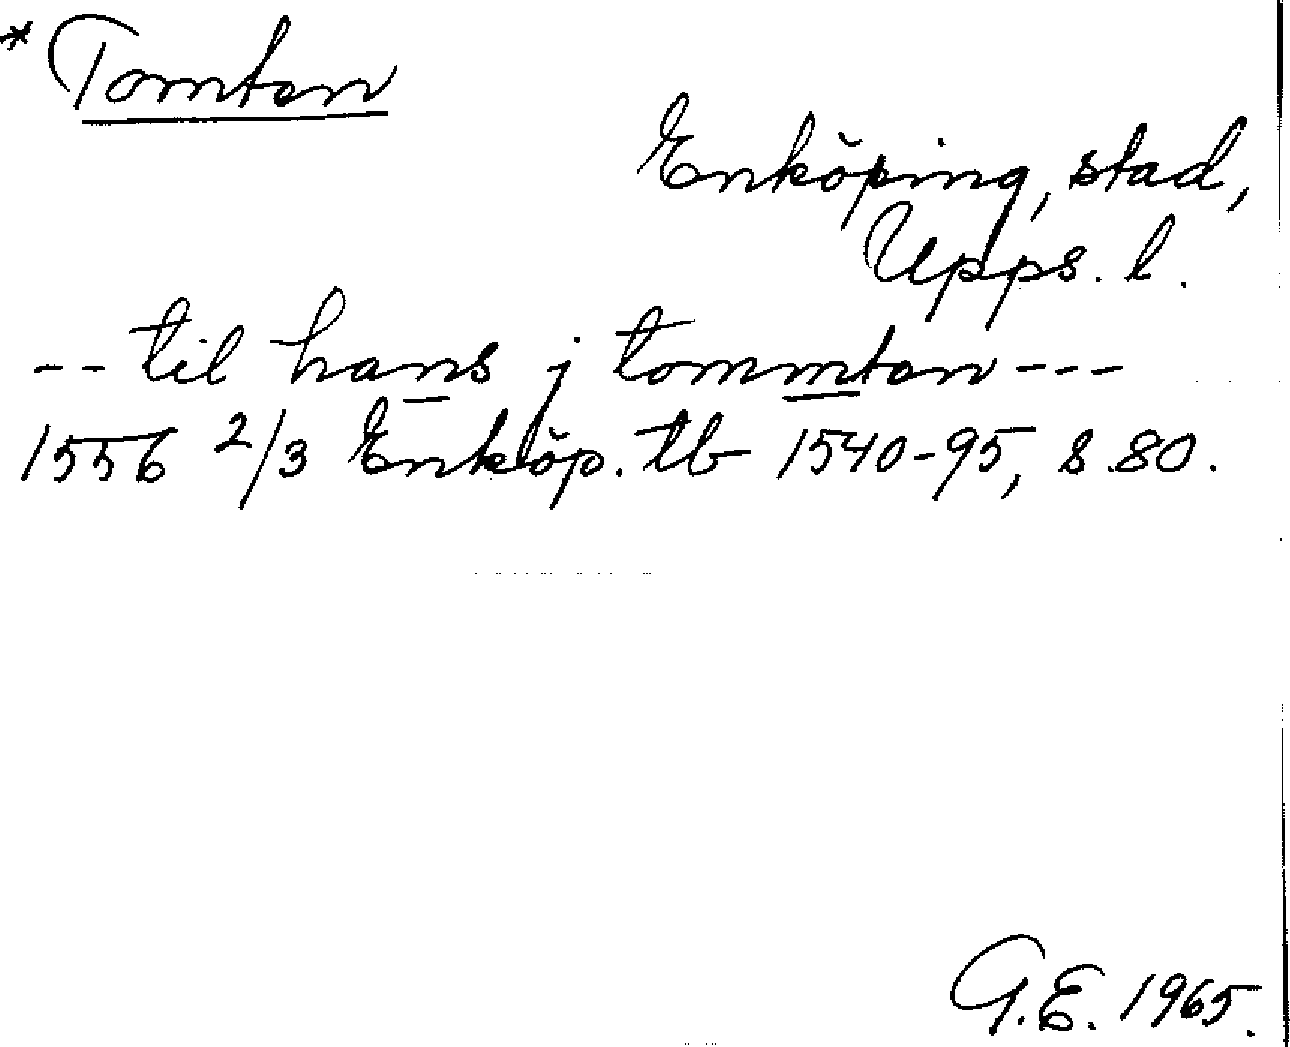 *Tomten
Enköping, stad,
Upps. l.
-- til hans j tommtan ---
1556 2/3 Enköp. tb 1540-95, s. 80.
G.E. 1965.